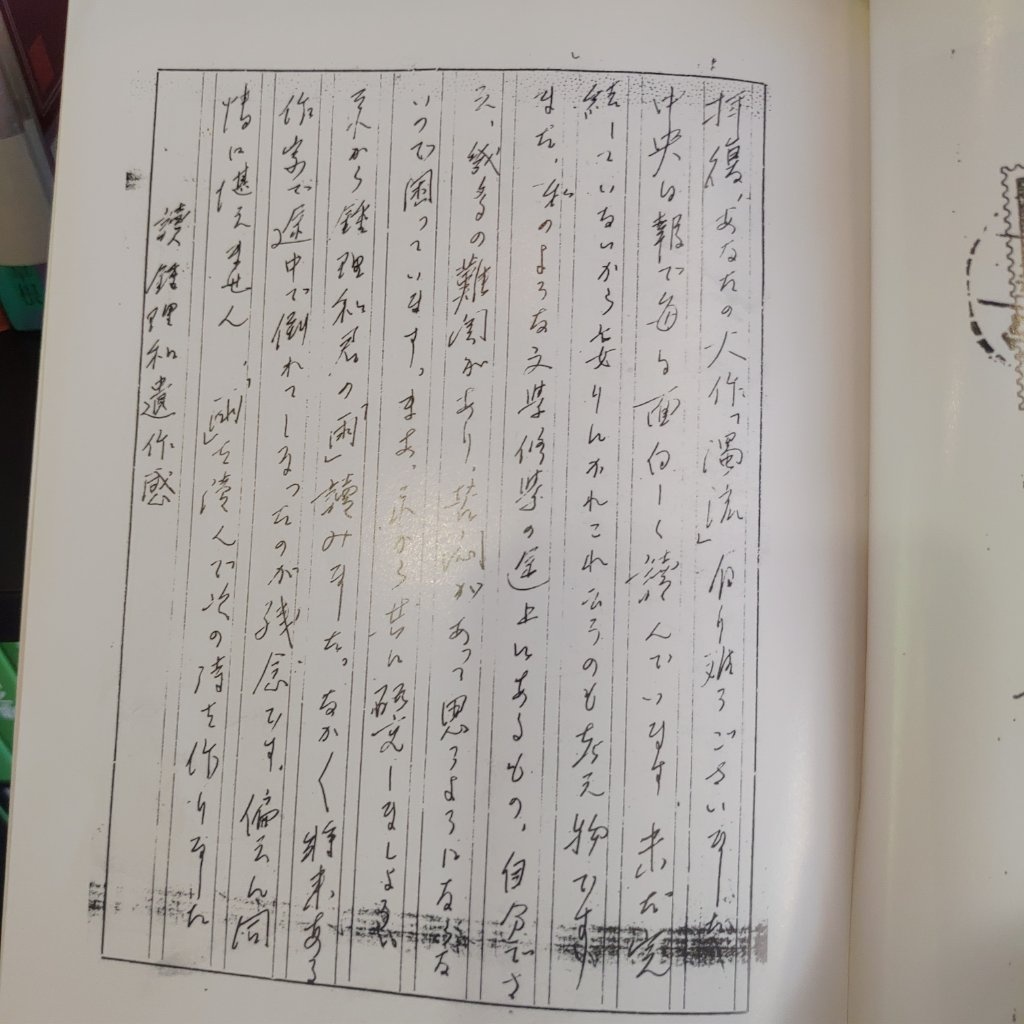 拝復、あなたの大作「濁流」有り難うございました
中央日報で毎日面白く讀んでいます 未だ完
結していないから妄りにかれこれ云うのも考え物です
また、私のような文學修業の途上にあるもの、自分でさ
え、幾多の難関があり、苦悶があって思うようにならな
いので困っています。まあ、これから共に研究しましよう
これから鍾理和君の「雨」讀みました。なかなか將來ある
作家で途中で倒れてしまったのが残念です。偏えに同
情に堪えません 「雨」を讀んで次の詩を作りました
讀鍾理和遺作感